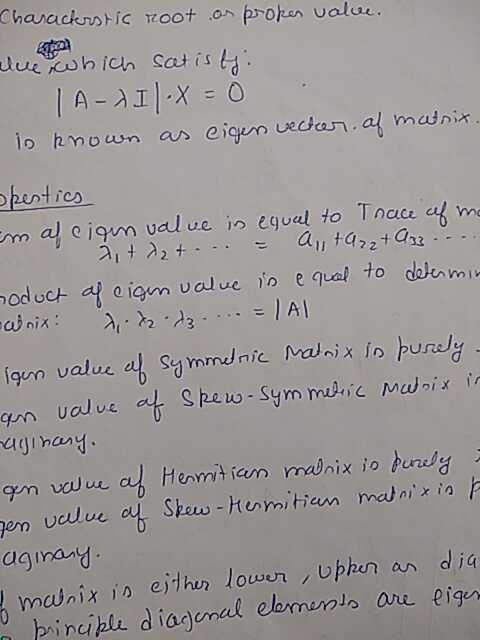 Characteristic root or proper value.
which satisfy:
|A - λI|·X = 0
is known as eigen vector of matrix.
of eigen value is equal to Trace of
λ₁ + λ₂ + ---- = a₁₁ + a₂₂ + a₃₃ ----
of eigen value is equal to
λ₁·λ₂·λ₃ ---- = |A|
value of Symmetric Matrix is purely
value of Skew-Symmetric Matrix
value of Hermitian matrix is purely
value of Skew-Hermitian matrix is
matrix is either lower, upper or
principle diagonal elements are